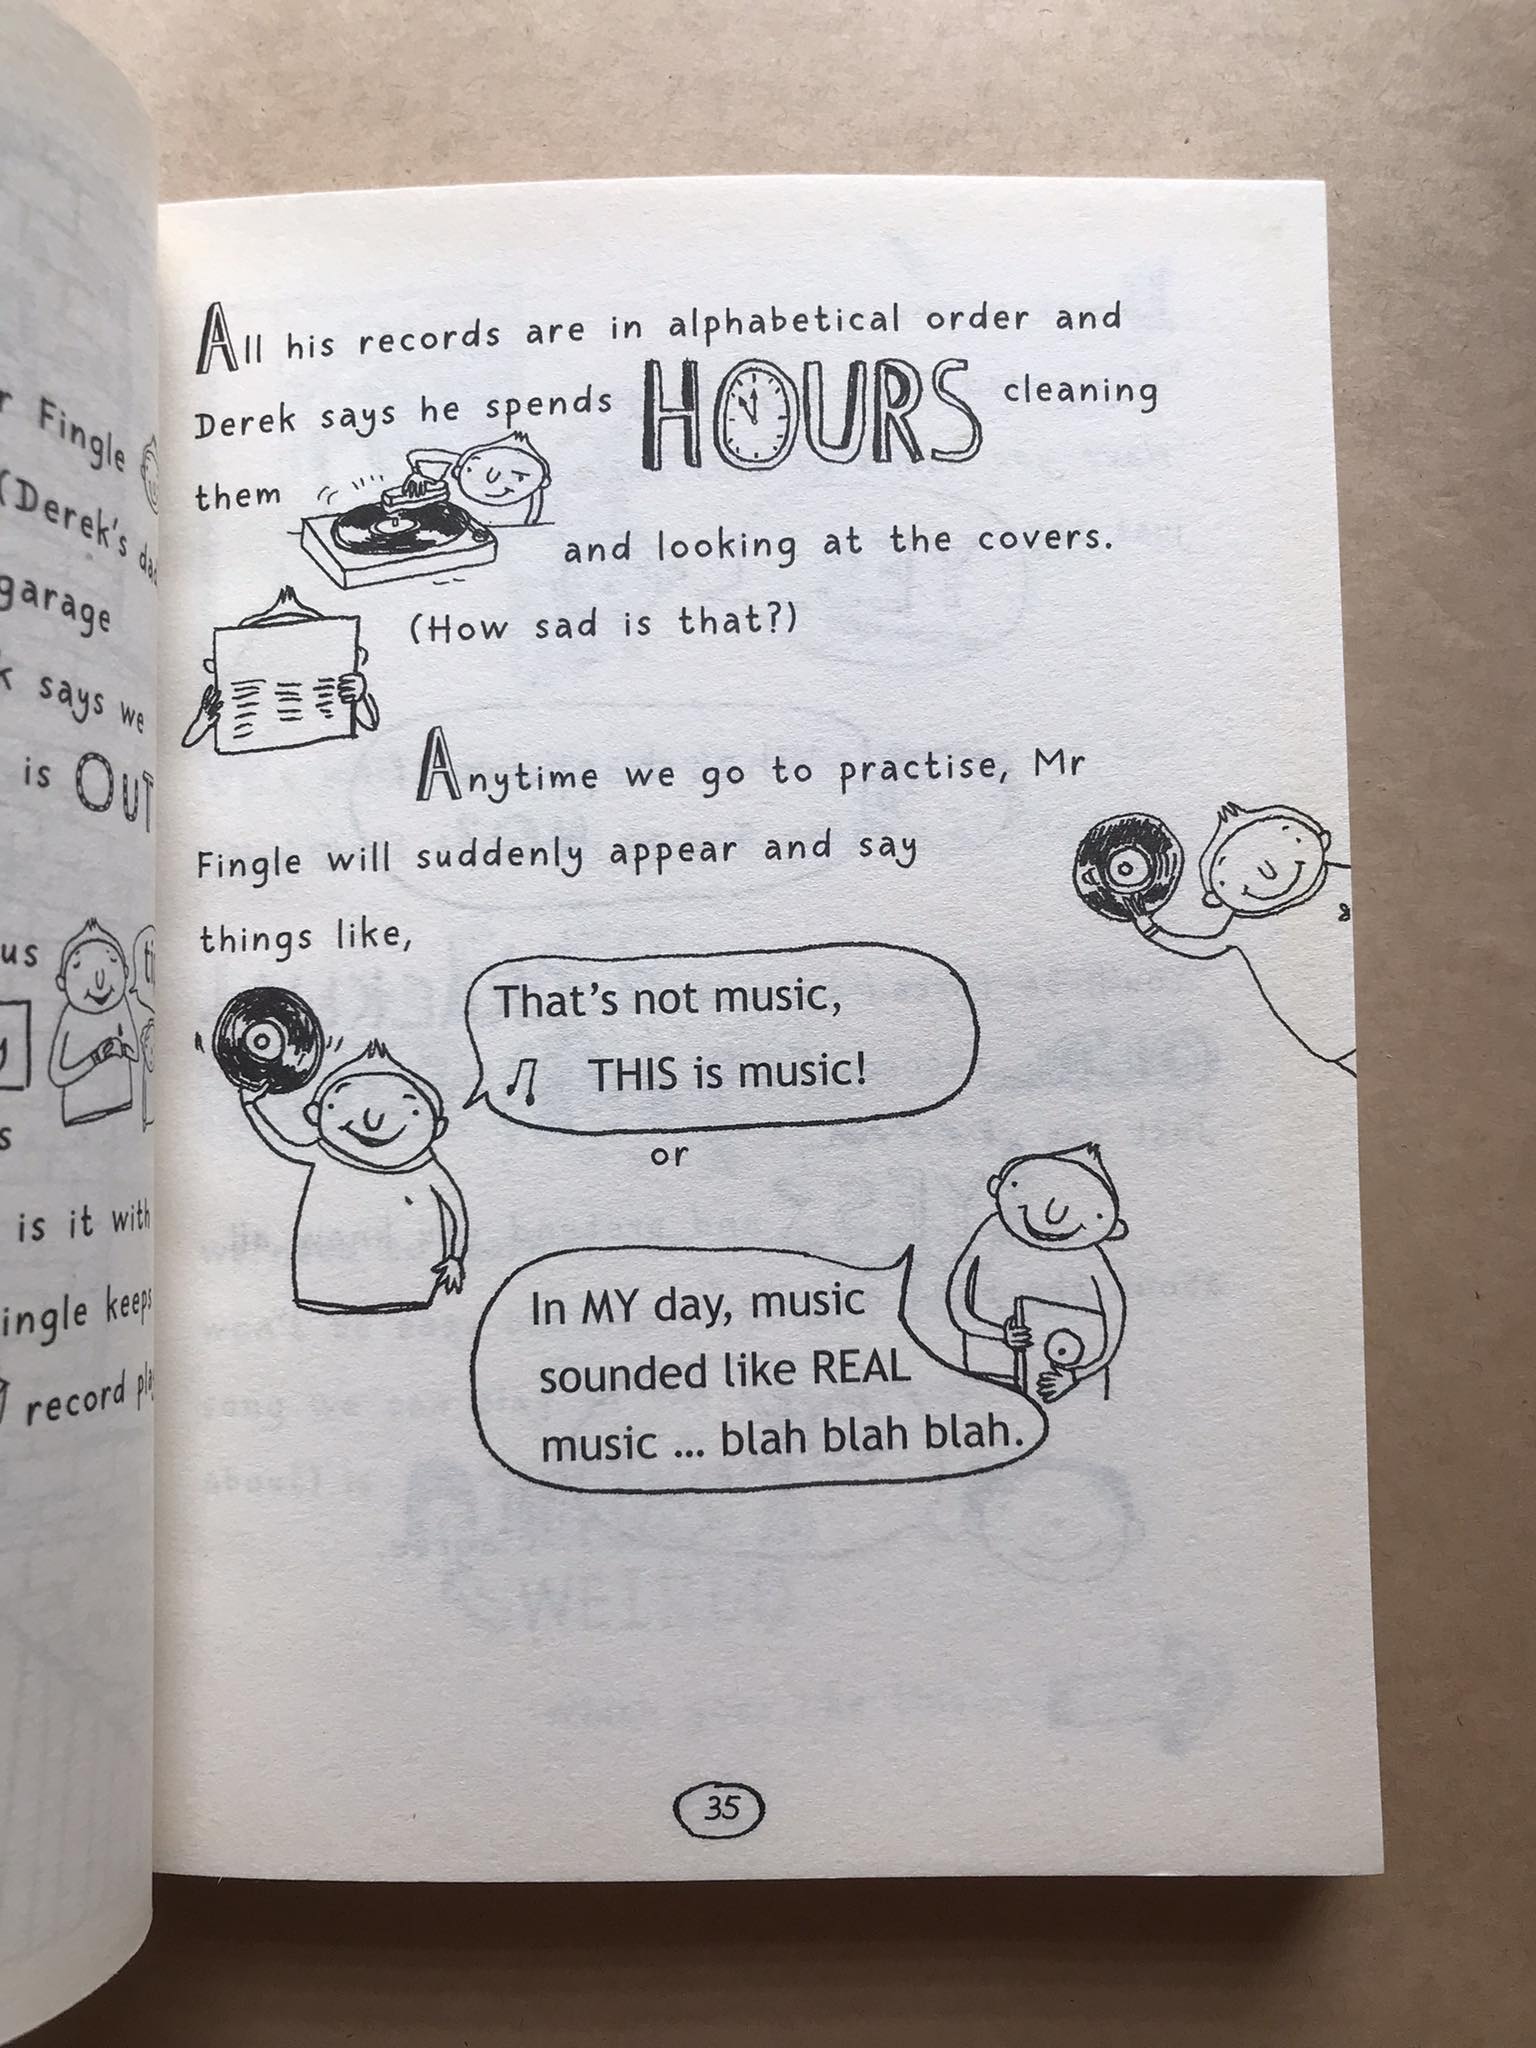 r Fingle
(Derek's
garage
k says we
is OUT
us
s
is it with
ingle keeps
record
All his records are in alphabetical order and
Derek says he spends HOURS cleaning
them
and looking at the covers.
(How sad is that?)
Anytime we go to practise, Mr
Fingle will suddenly appear and say
things like,
That's not music,
THIS is music!
or
In MY day, music
sounded like REAL
music ... blah blah blah.
35